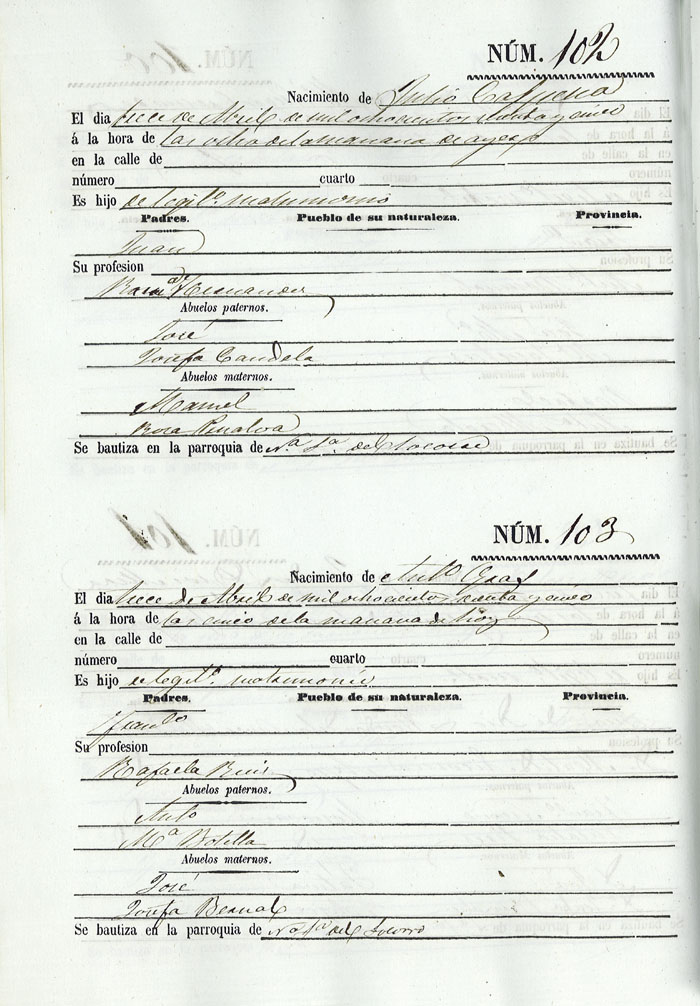 NÚM. 102
Nacimiento de Julio
El dia trece de Abril de mil ochocientos y cinco
á la hora de las ocho de la mañana de ayer
en la calle de
número cuarto
Es hijo de legit.º matrimonio
Padres. Pueblo de su naturaleza. Provincia.
Juan
Su profesion
Ram.ª Hernandez
Abuelos paternos.
José
Josefa Candela
Abuelos maternos.
Manuel
Rosa Penalva
Se bautiza en la parroquia de N.ª S.ª del Socorro
NÚM. 103
Nacimiento de Ant.º Graf
El dia trece de Abril de mil ochocientos y cinco
á la hora de las cinco de la mañana de hoy
en la calle de
número cuarto
Es hijo de legit.º matrimonio
Padres. Pueblo de su naturaleza. Provincia.
Su profesion
Rafaela Ruiz
Abuelos paternos.
Ant.º
M.ª Botella
Abuelos maternos.
José
Josefa Bernal
Se bautiza en la parroquia de N.ª S.ª del Socorro